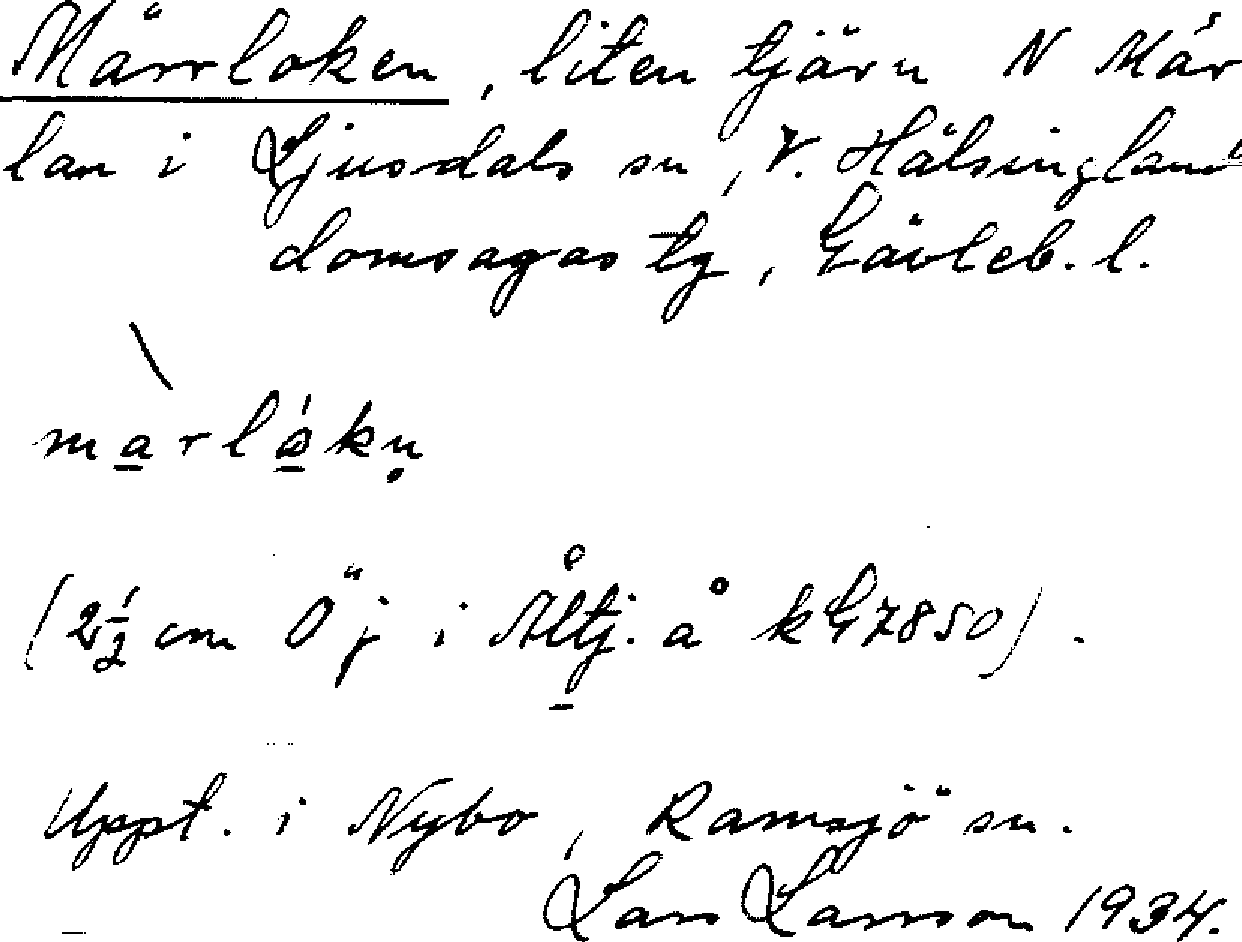 Märrloken, liten tjärn N Mär
lan i Ljusdals sn, V. Hälsingland
domsagas tg, Gävleb. l.
marlåkn̥
(2½ cm Ö j i Åltj. å kG7850).
Uppt. i Nybo, Ramsjö sn.
Lars Larsson 1934.